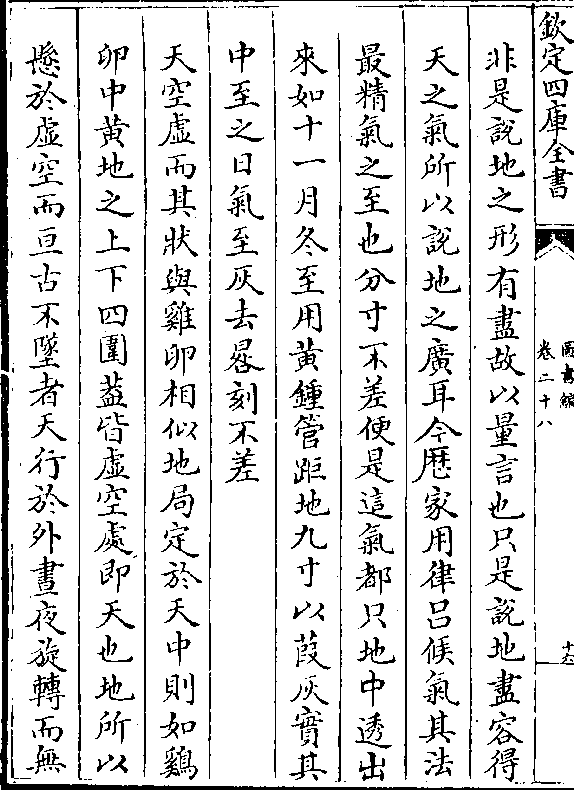 欽定四庫全書
圖書編
卷二十八
十六
非是說地之形有盡故以量言也只是說地盡容得
天之氣所以說地之廣耳今厯家用律吕候氣其法
最精氣之至也分寸不差便是這氣都只地中透出
來如十一月冬至用黄鍾管距地九寸以葭灰實其
中至之日氣至灰去晷刻不差
天空虚而其狀與雞卵相似地局定於天中則如鷄
卵中黄地之上下四圍葢皆虚空處即天也地所以
懸於虚空而亘古不墜者天行於外晝夜旋轉而無